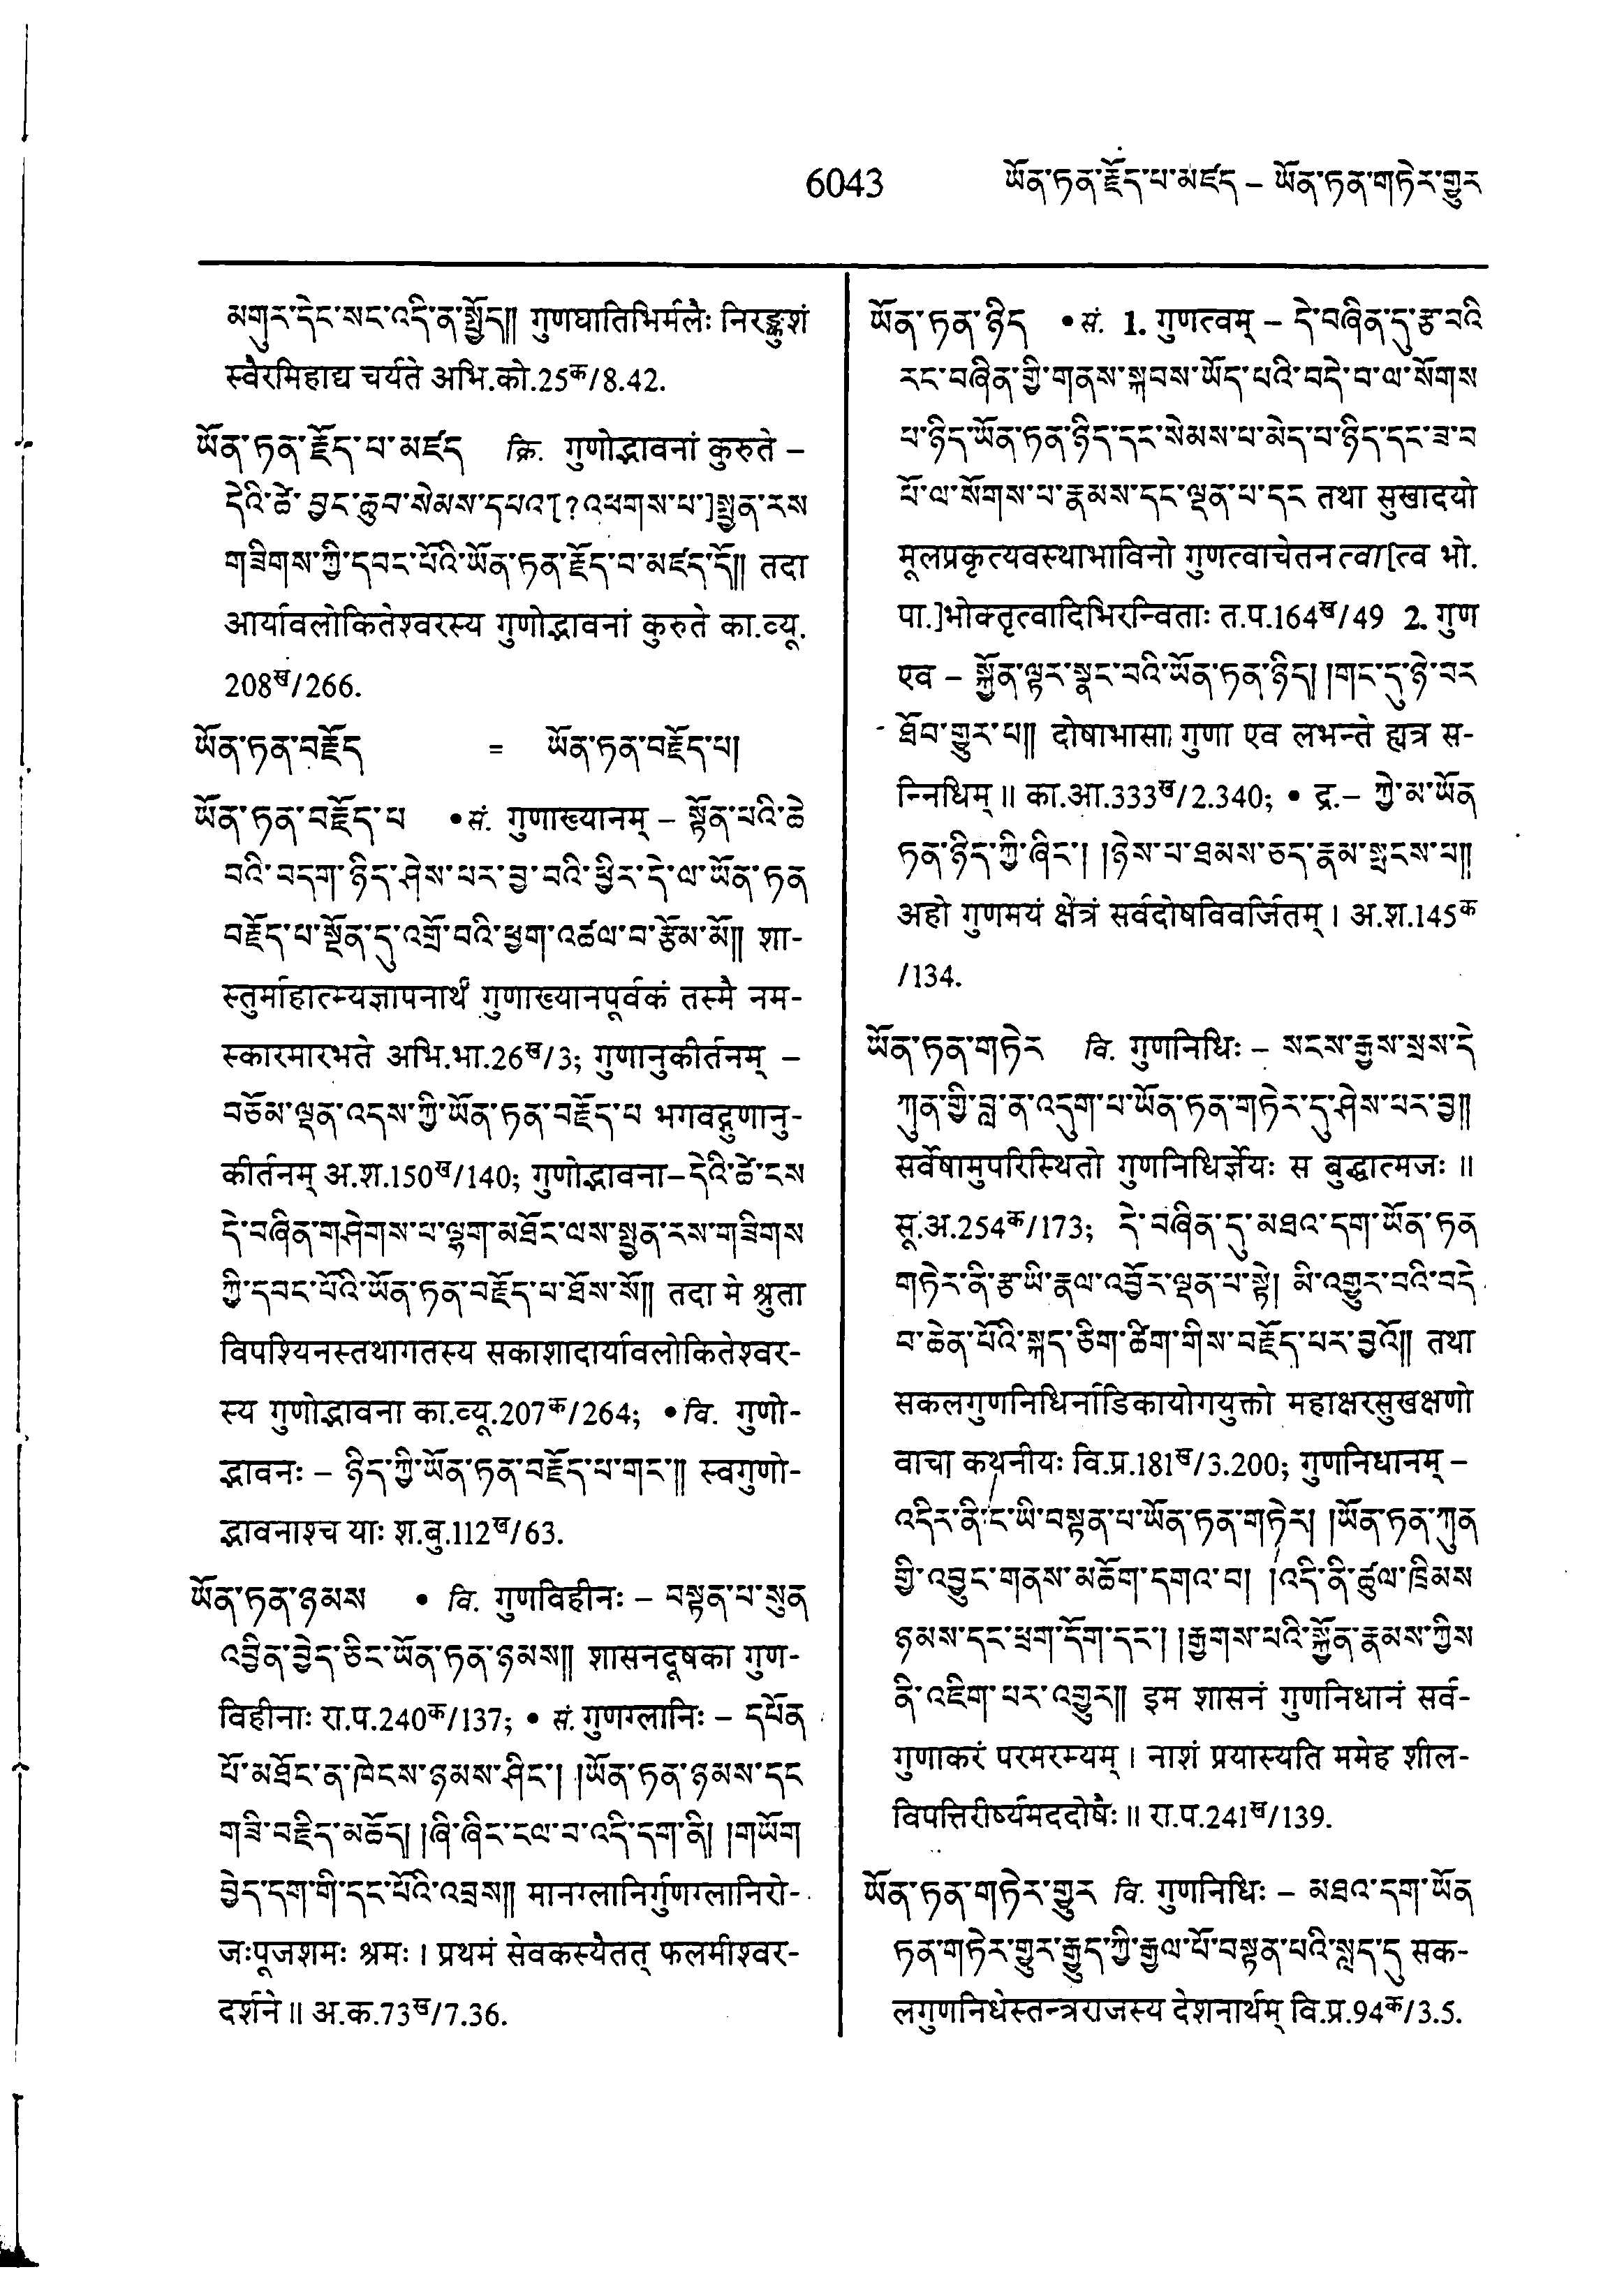 6043
ཡོན་ཏན་རྗོད་པ་མཛད – ཡོན་ཏན་གཏེར་གྱུར
མགུར་དེང་སང་འདི་ན་སྤྱོད།། गुणघातिभिर्मलैः निरङ्कुशं
स्वैरमिहाद्य चर्यते अभि.को.25क/8.42.
ཡོན་ཏན་རྗོད་པ་མཛད क्रि. गुणोद्भावनां कुरुते –
དེའི་ཚེ་བྱང་ཆུབ་སེམས་དཔའ་[?འཕགས་པ་]སྤྱན་རས
གཟིགས་ཀྱི་དབང་པོའི་ཡོན་ཏན་རྗོད་བ་མཛད་དོ།། तदा
आर्यावलोकितेश्वरस्य गुणोद्भावनां कुरुते का.व्यू.
208ख/266.
ཡོན་ཏན་བརྗོད = ཡོན་ཏན་བརྗོད་པ།
ཡོན་ཏན་བརྗོད་པ • सं. गुणाख्यानम् – སྟོན་པའི་ཆེ
བའི་བདག་ཉིད་ཤེས་པར་བྱ་བའི་ཕྱིར་དེ་ལ་ཡོན་ཏན
བརྗོད་པ་སྔོན་དུ་འགྲོ་བའི་ཕྱག་འཚལ་བ་རྩོམ་མོ།། शा-
स्तुर्माहात्म्यज्ञापनार्थं गुणाख्यानपूर्वकं तस्मै नम-
स्कारमारभते अभि.भा.26ख/3; गुणानुकीर्तनम् –
བཅོམ་ལྡན་འདས་ཀྱི་ཡོན་ཏན་བརྗོད་པ भगवद्गुणानु-
कीर्तनम् अ.श.150ख/140; गुणोद्भावना–དེའི་ཚེ་ངས
དེ་བཞིན་གཤེགས་པ་ལྷག་མཐོང་ལས་སྤྱན་རས་གཟིགས
ཀྱི་དབང་པོའི་ཡོན་ཏན་བརྗོད་པ་ཐོས་སོ།། तदा मे श्रुता
विपश्यिनस्तथागतस्य सकाशादार्यावलोकितेश्वर-
स्य गुणोद्भावना का.व्यू.207क/264; • वि. गुणो-
द्भावनः – ཉིད་ཀྱི་ཡོན་ཏན་བརྗོད་པ་གང་།། स्वगुणो-
द्भावनाश्च याः श.बु.112ख/63.
ཡོན་ཏན་ཉམས • वि. गुणविहीनः – བསྟན་པ་སུན
འབྱིན་བྱེད་ཅིང་ཡོན་ཏན་ཉམས།། शासनदूषका गुण-
विहीनाः रा.प.240क/137; • सं. गुणग्लानिः – དཔོན
པོ་མཐོང་ན་ཁེངས་ཉམས་ཤིང་། །ཡོན་ཏན་ཉམས་དང
གཟི་བརྗིད་མཆོད། །ཞི་ཞིང་ངལ་བ་འདི་དག་ནི། །གཡོག
བྱེད་དག་གི་དང་པོའི་འབྲས།། मानग्लानिर्गुणग्लानिरो-
जःपूजशमः श्रमः । प्रथमं सेवकस्यैतत् फलमीश्वर-
दर्शने ॥ अ.क.73ख/7.36.
ཡོན་ཏན་ཉིད • सं. 1. गुणत्वम् – དེ་བཞིན་དུ་རྩ་བའི
རང་བཞིན་གྱི་གནས་སྐབས་ཡོད་པའི་བདེ་བ་ལ་སོགས
པ་ཉིད་ཡོན་ཏན་ཉིད་དང་སེམས་པ་མེད་པ་ཉིད་དང་ཟ་བ
པོ་ལ་སོགས་པ་རྣམས་དང་ལྡན་པ་དང तथा सुखादयो
मूलप्रकृत्यवस्थाभाविनो गुणत्वाचेतनत्वा[त्व भो.
पा.]भोक्तृत्वादिभिरन्विताः त.प.164ख/49 2. गुण
एव – སྐྱོན་ལྟར་སྣང་བའི་ཡོན་ཏན་ཉིད། །གང་དུ་ཉེ་བར
ཐོབ་གྱུར་པ།། दोषाभासा गुणा एव लभन्ते ह्यत्र स-
न्निधिम् ॥ का.आ.333ख/2.340; • द्र.– ཀྱེ་མ་ཡོན
ཏན་ཉིད་ཀྱི་ཞིང་། །ཉེས་པ་ཐམས་ཅད་རྣམ་སྤངས་པ།།
अहो गुणमयं क्षेत्रं सर्वदोषविवर्जितम् । अ.श.145क
/134.
ཡོན་ཏན་གཏེར वि. गुणनिधिः – སངས་རྒྱས་སྲས་དེ
ཀུན་གྱི་བླ་ན་འདུག་པ་ཡོན་ཏན་གཏེར་དུ་ཤེས་པར་བྱ།།
सर्वेषामुपरिस्थितो गुणनिधिर्ज्ञेयः स बुद्धात्मजः ॥
सू.अ.254क/173; དེ་བཞིན་དུ་མཐའ་དག་ཡོན་ཏན
གཏེར་ནི་རྩ་ཡི་རྣལ་འབྱོར་ལྡན་པ་སྟེ། མི་འགྱུར་བའི་བདེ
བ་ཆེན་པོའི་སྐད་ཅིག་ཚིག་གིས་བརྗོད་པར་བྱའོ།། तथा
सकलगुणनिधिर्नाडिकायोगयुक्तो महाक्षरसुखक्षणो
वाचा कथनीयः वि.प्र.181ख/3.200; गुणनिधानम् –
འདིར་ནི་ང་ཡི་བསྟན་པ་ཡོན་ཏན་གཏེར། །ཡོན་ཏན་ཀུན
གྱི་འབྱུང་གནས་མཆོག་དགའ་བ། །འདི་ནི་ཚུལ་ཁྲིམས
ཉམས་དང་ཕྲག་དོག་དང་། །རྒྱགས་པའི་སྐྱོན་རྣམས་ཀྱིས
ནི་འཇིག་པར་འགྱུར།། इम शासनं गुणनिधानं सर्व-
गुणाकरं परमरम्यम् । नाशं प्रयास्यति ममेह शील-
विपत्तिरीर्ष्यमददोषैः ॥ रा.प.241ख/139.
ཡོན་ཏན་གཏེར་གྱུར वि. गुणनिधिः – མཐའ་དག་ཡོན
ཏན་གཏེར་གྱུར་རྒྱུད་ཀྱི་རྒྱལ་པོ་བསྟན་པའི་སླད་དུ सक-
लगुणनिधेस्तन्त्रराजस्य देशनार्थम् वि.प्र.94क/3.5.